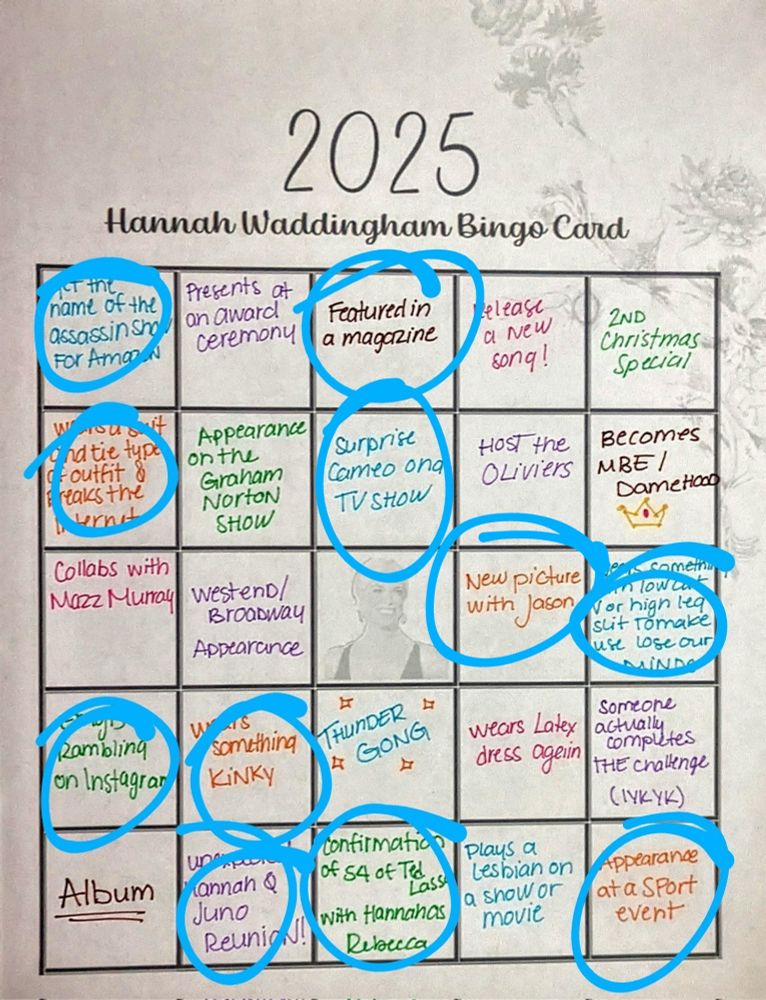 2025
Hannah Waddingham Bingo Card
the
name of the
assassin show
For Amazon
Presents at
an award
ceremony
Featured in
a magazine
Release
a new
song!
2ND
Christmas
Special
Wears a suit
and tie type
of outfit &
Breaks the
Internet
Appearance
on the
Graham
Norton
SHOW
Surprise
Cameo on a
TV SHOW
HOST the
OLiviers
Becomes
MBE /
DameHOOD
Collabs with
Mazz Murray
Westend/
BROADWAY
Appearance
New picture
with Jason
Wears something
low cut
V or high leg
slit to make
use lose our
MINDS
Rambling
on Instagram
Wears
something
KiNKY
THUNDER
GONG
wears Latex
dress ageiin
Someone
actually
completes
THE challenge
(IYKYK)
Album
Hannah &
Juno
ReuniON!
Confirmation
of S4 of Ted
Lasso
with Hannah as
Rebecca
Plays a
Lesbian on
a show or
movie
Appearance
at a SPort
event